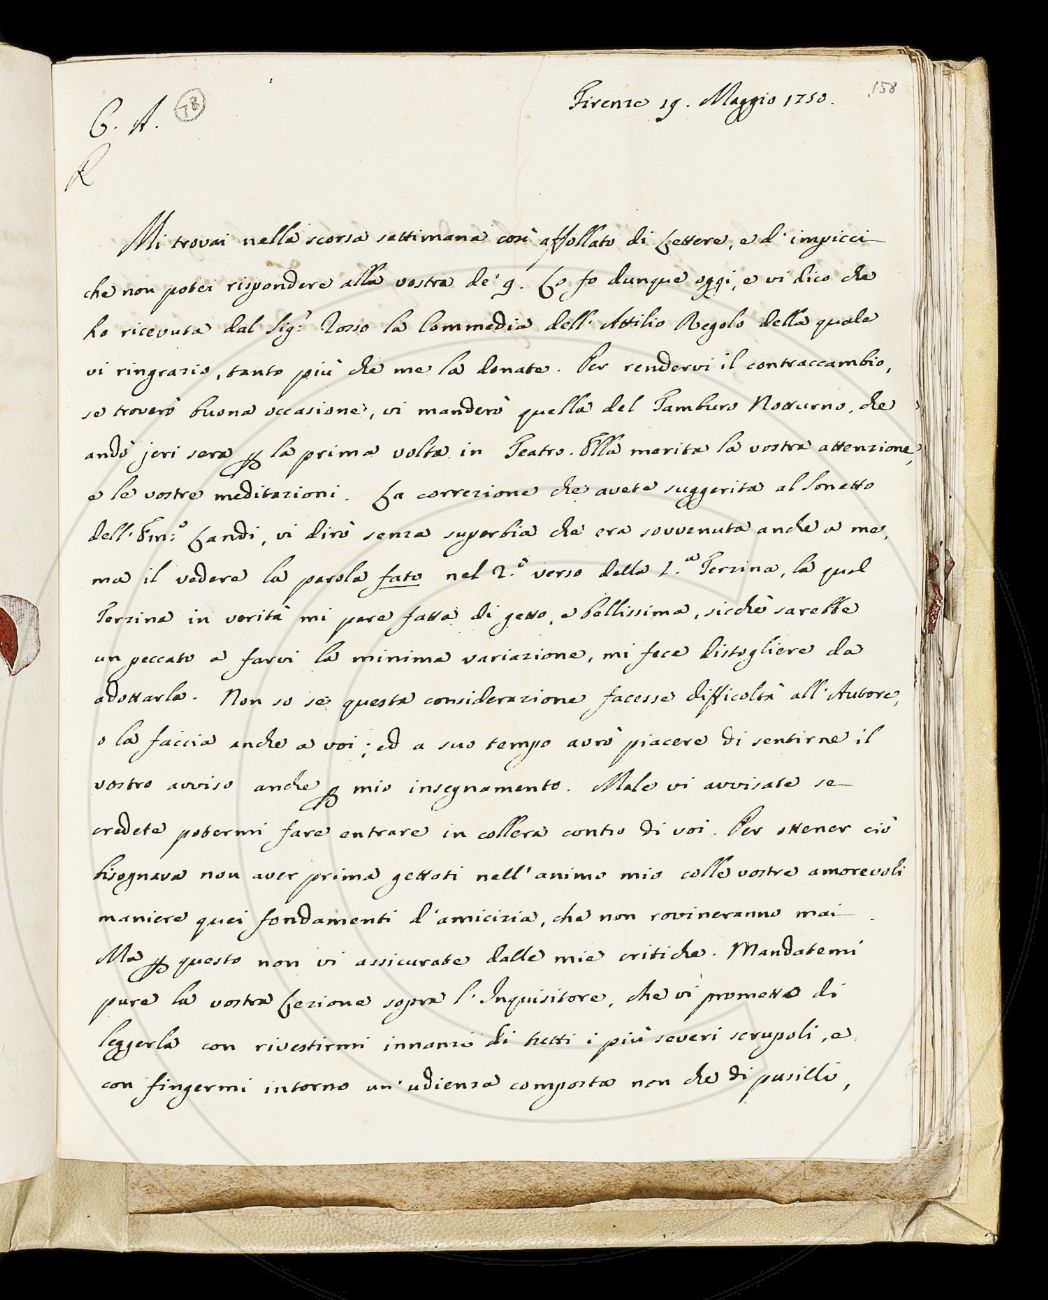 158
Firenze 19. Maggio 1750.
C. A. 78
R
Mi trovai nella scorsa settimana così affollato di Lettere, e d'impicci
che non potei rispondere alla vostra de' 9. Lo fo dunque oggi, e vi dico che
ho ricevuta dal Sig.r Rosso la Commedia dell'Attilio Regolo della quale
vi ringrazio, tanto più che me la donate. Per rendervi il contraccambio,
se troverò buona occasione, vi manderò quella del Tamburo Notturno, che
andò jeri sera p la prima volta in Teatro. Ella merita la vostra attenzione,
e le vostre meditazioni. La correzione che avete suggerita al Sonetto
dell'Em.o Landi, vi dirò senza superbia che era sovvenuta anche a me,
ma il vedere la parola fato nel 2.o verso della 1.a Terzina, la qual
Terzina in verità mi pare fatta di getto, e bellissima, sicchè sarebbe
un peccato a farvi la minima variazione, mi fece distogliere da
adottarla. Non so se questa considerazione facesse difficoltà all'Autore,
o la faccia anche a voi; ed a suo tempo avrò piacere di sentirne il
vostro avviso anche p mio insegnamento. Male vi avvisate se
credete potermi fare entrare in collera contro di voi. Per ottener ciò
bisognava non aver prima gettati nell'animo mio colle vostre amorevoli
maniere quei fondamenti d'amicizia, che non rovineranno mai.
Ma p questo non vi assicurate dalle mie critiche. Mandatemi
pure la vostra Lezione sopra l'Inquisitore, che vi prometto di
leggerla con rivestirmi innanzi di tutti i più severi scrupoli, e
con fingermi intorno un'udienza composta non che di pusilli,